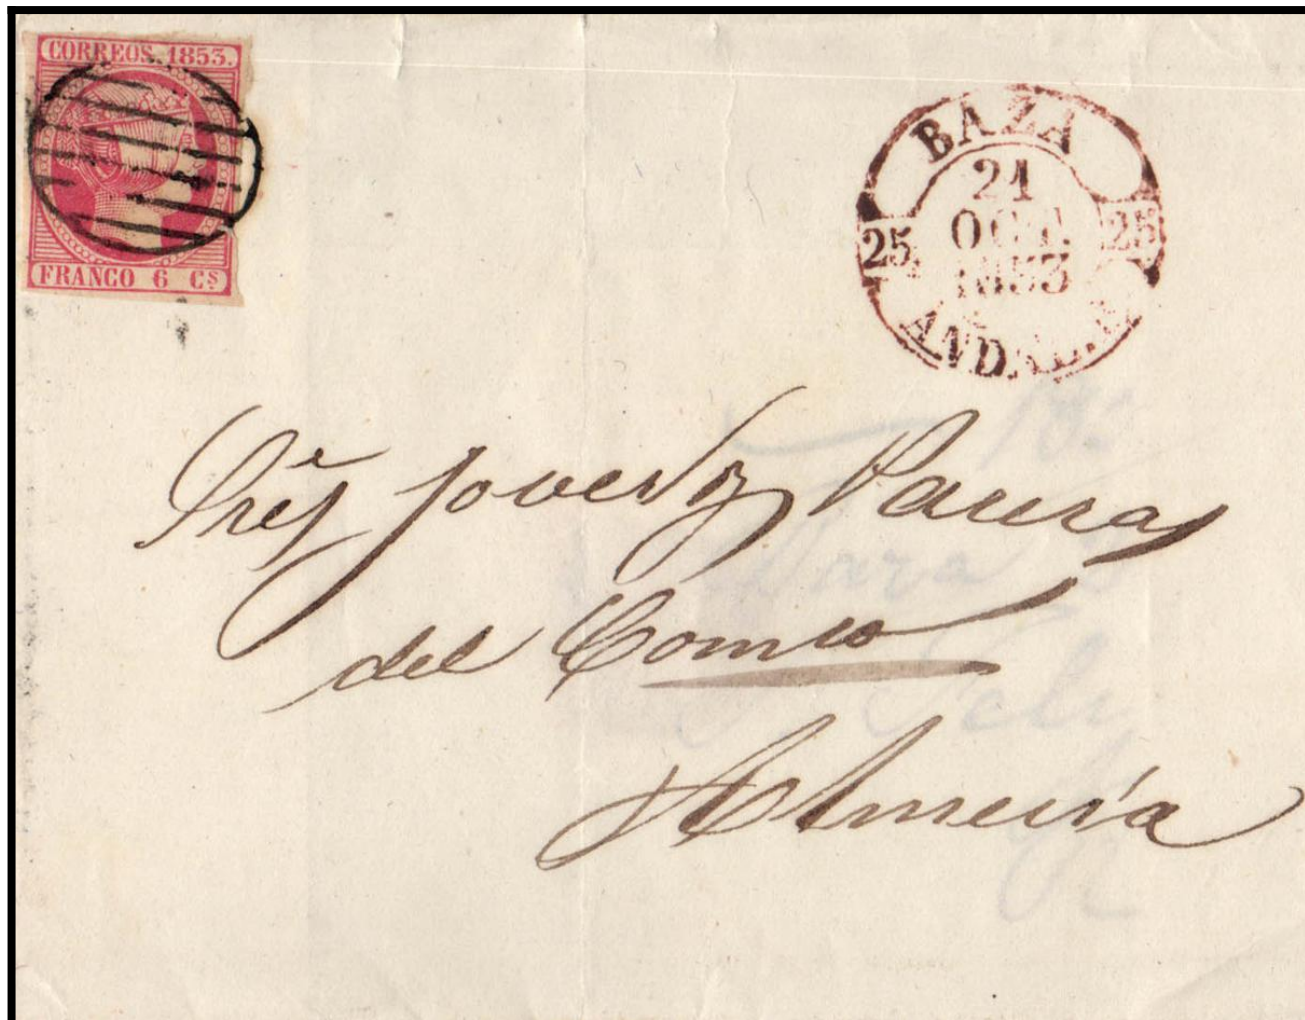 CORREOS. 1853.
FRANCO 6 Cs
BAZA
21
25 OCT. 25
1853
ANDAL.
Sres
del Comco
Almería